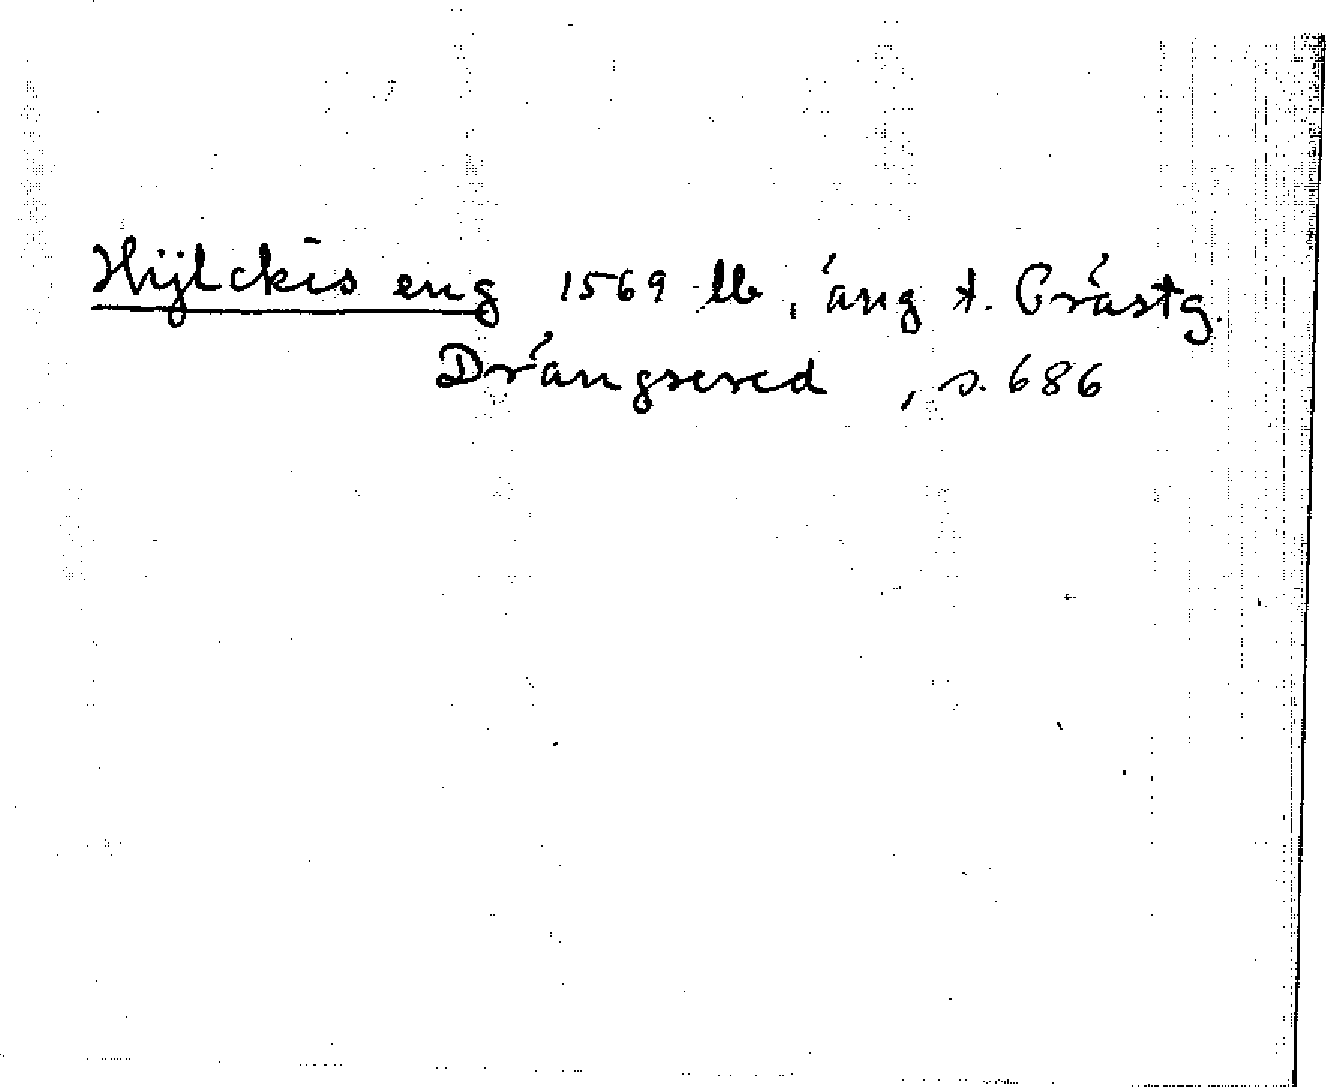 Hÿlckis eng 1569 lb, äng t. Prästg.
Drängsered, s. 686